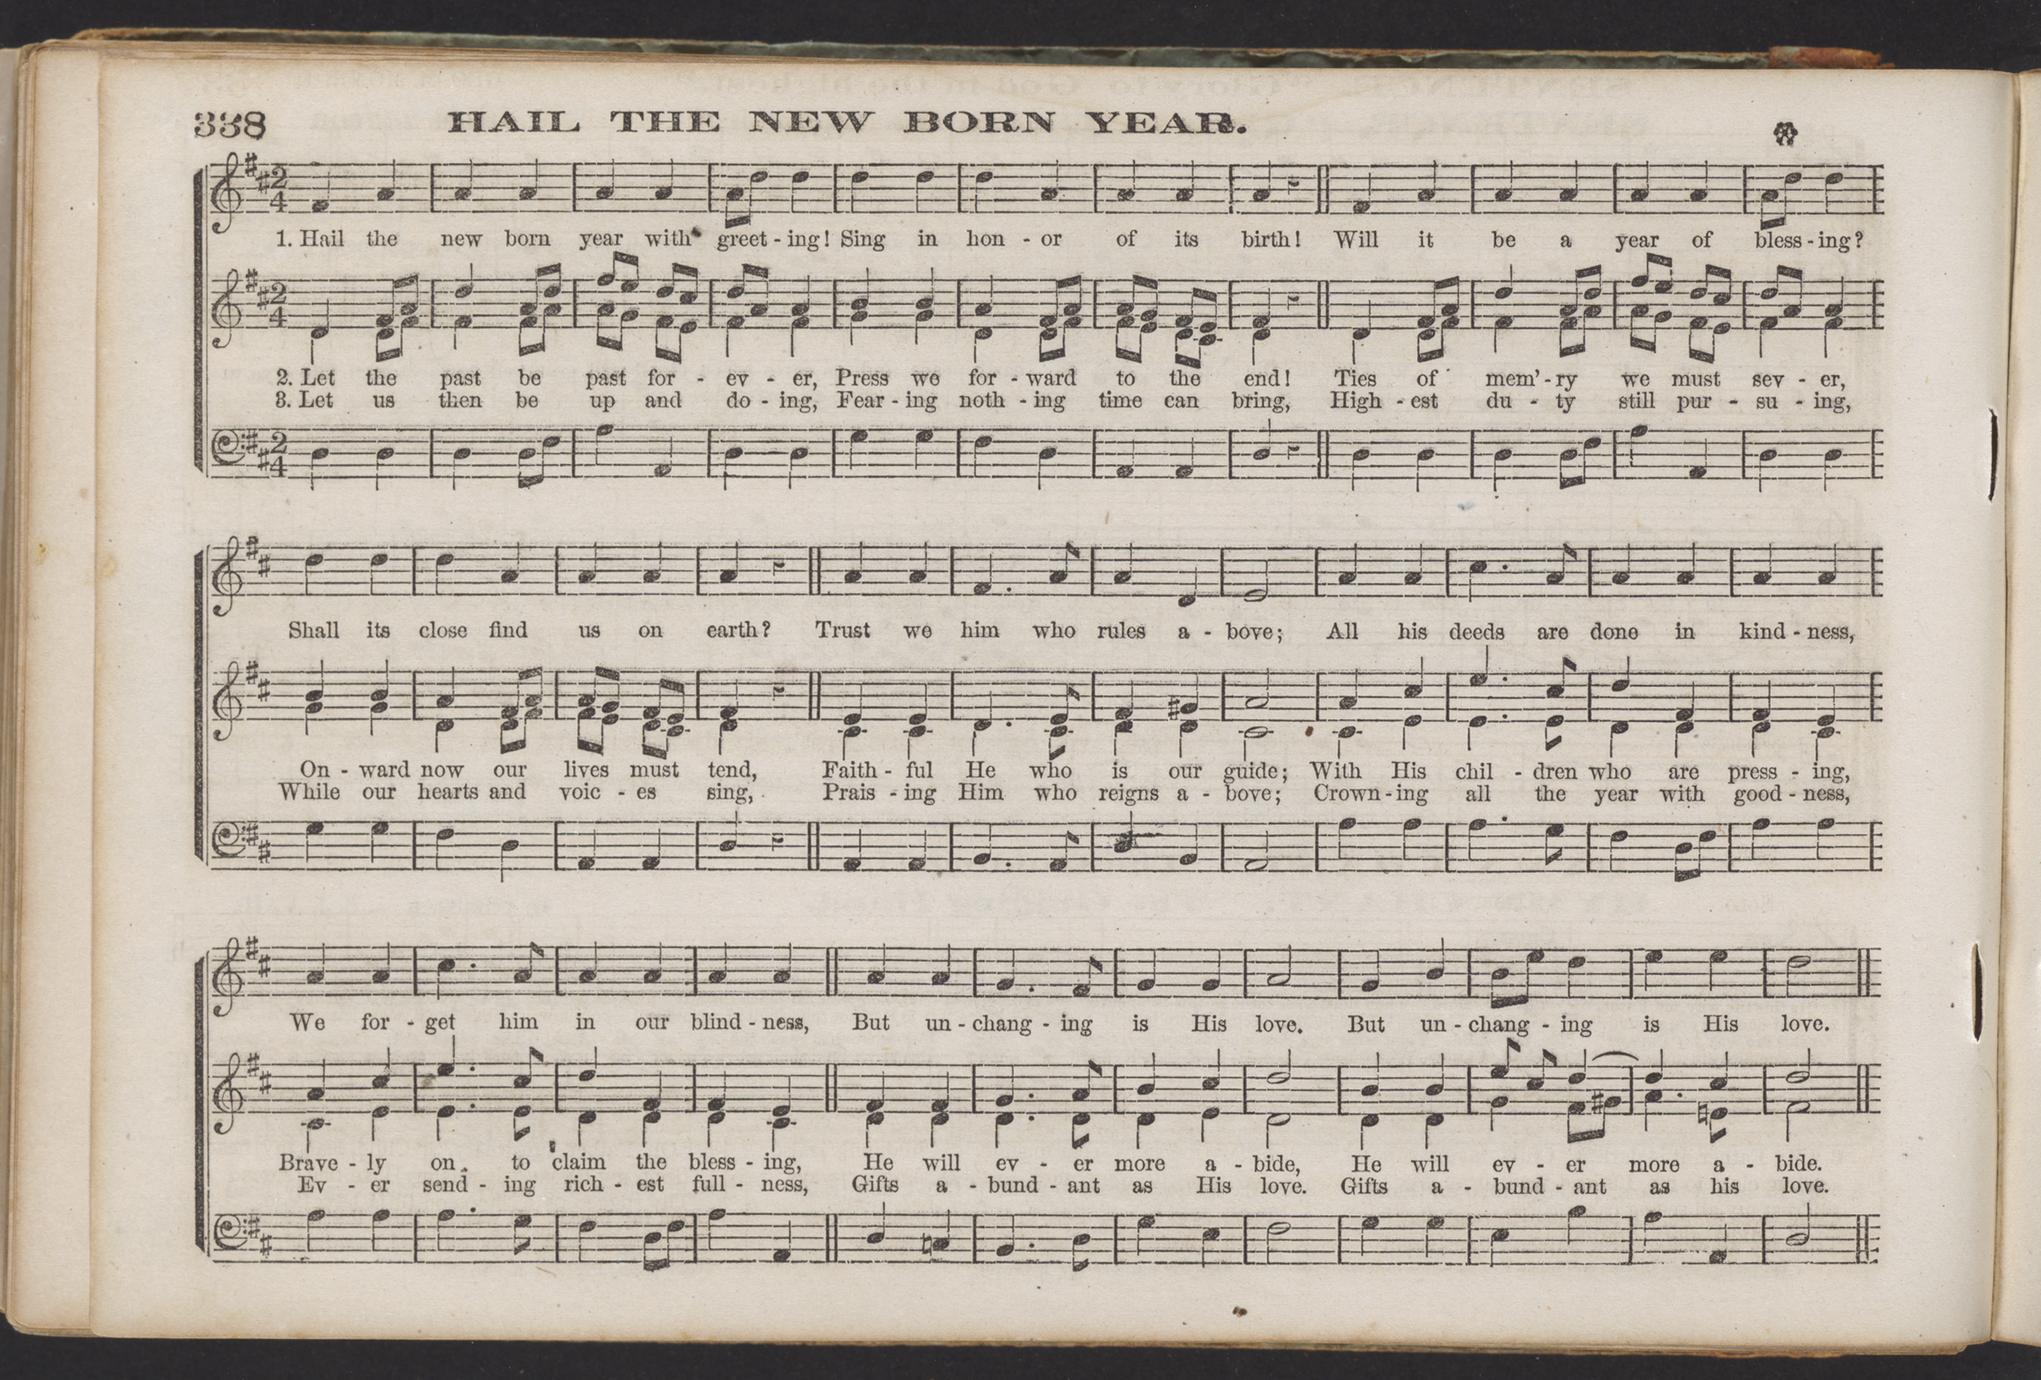 338 HAIL THE NEW BORN YEAR.
1. Hail the new born year with greet - ing! Sing in hon - or of its birth! Will it be a year of bless - ing?
2. Let the past be past for - ev - er, Press we for - ward to the end! Ties of mem' - ry we must sev - er,
3. Let us then be up and do - ing, Fear - ing noth - ing time can bring, High - est du - ty still pur - su - ing,
Shall its close find us on earth? Trust we him who rules a - bove; All his deeds are done in kind - ness,
On - ward now our lives must tend, Faith - ful He who is our guide; With His chil - dren who are press - ing,
While our hearts and voic - es sing, Prais - ing Him who reigns a - bove; Crown - ing all the year with good - ness,
We for - get him in our blind - ness, But un - chang - ing is His love. But un - chang - ing is His love.
Brave - ly on to claim the bless - ing, He will ev - er more a - bide, He will ev - er more a - bide.
Ev - er send - ing rich - est full - ness, Gifts a - bund - ant as His love. Gifts a - bund - ant as his love.